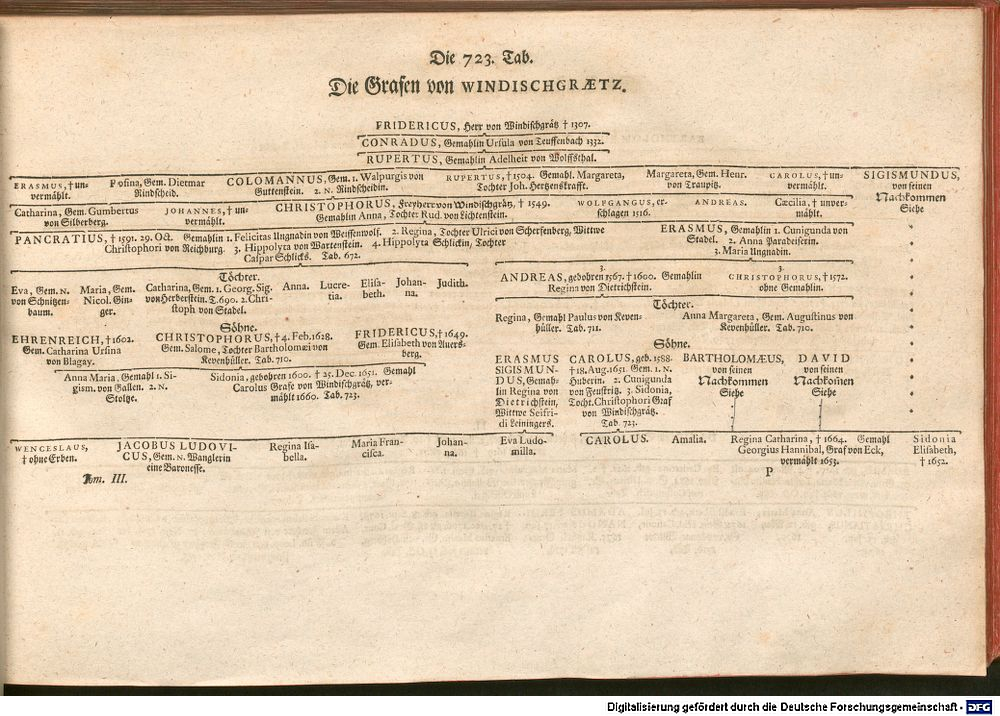 Die 723. Tab.
Die Grafen von WINDISCHGRÆTZ.
FRIDERICUS, Herr von Windischgrätz † 1307.
CONRADUS, Gemahlin Ursula von Teuffenbach 1332.
RUPERTUS, Gemahlin Adelheit von Wolffsthal.
ERASMUS, † un-
vermählt.
Rosina, Gem. Dietmar
Rindscheid.
COLOMANNUS, Gem. 1. Walpurgis von
Guttenstein. 2. N. Rindscheidin.
RUPERTUS, † 1504. Gemahl. Margareta,
Tochter Joh. Hertzenskrafft.
Margareta, Gem. Henr.
von Traupitz.
CAROLUS, † un-
vermählt.
SIGISMUNDUS,
von seinen
Nachkommen
Siehe
Catharina, Gem. Gumbertus
von Silberberg.
JOHANNES, † un-
vermählt.
CHRISTOPHORUS, Freyherr von Windischgrätz, † 1549.
Gemahlin Anna, Tochter Rud. von Lichtenstein.
WOLFGANGUS, er-
schlagen 1516.
ANDREAS.
Cæcilia, † unver-
mählt.
PANCRATIUS, † 1591. 29. Oct. Gemahlin 1. Felicitas Ungnadin von Weissenwolf. 2. Regina, Tochter Ulrici von Scherfenberg, Wittwe
Christophori von Reichburg. 3. Hippolyta von Wartenstein. 4. Hippolyta Schlickin, Tochter
Caspar Schlicks. Tab. 672.
ERASMUS, Gemahlin 1. Cunigunda von
Stadel. 2. Anna Paradeiserin.
3. Maria Ungnadin.
Töchter.
Eva, Gem. N.
von Schnitzen-
baum.
Maria, Gem.
Nicol. Gin-
ger.
Catharina, Gem. 1. Georg. Sig.
von Herberstein. T. 690. 2. Chri-
stoph von Stadel.
Anna.
Lucre-
tia.
Elisa-
beth.
Johan-
na.
Judith.
3.
ANDREAS, gebohren 1567. † 1600. Gemahlin
Regina von Dietrichstein.
3.
CHRISTOPHORUS, † 1572.
ohne Gemahlin.
Töchter.
Regina, Gemahl Paulus von Keven-
hüller. Tab. 711.
Anna Margareta, Gem. Augustinus von
Kevenhüller. Tab. 710.
Söhne.
EHRENREICH, † 1602.
Gem. Catharina Ursina
von Blagay.
CHRISTOPHORUS, † 4. Feb. 1628.
Gem. Salome, Tochter Bartholomæi von
Kevenhüller. Tab. 710.
FRIDERICUS, † 1649.
Gem. Elisabeth von Auers-
berg.
Anna Maria, Gemahl 1. Si-
gism. von Gallen. 2. N.
Stoltze.
Sidonia, gebohren 1600. † 25. Dec. 1651. Gemahl
Carolus Grafe von Windischgrätz, ver-
mählt 1660. Tab. 723.
Söhne.
ERASMUS
SIGISMUN-
DUS, Gemah-
lin Regina von
Dietrichstein,
Wittwe Seifri-
di Leiningers.
CAROLUS, geb. 1588.
† 18. Aug. 1651. Gem. 1. N.
Huberin. 2. Cunigunda
von Feustritz. 3. Sidonia,
Tocht. Christophori Graf
von Windischgrätz.
Tab. 723.
BARTHOLOMÆUS,
von seinen
Nachkommen
Siehe
DAVID
von seinen
Nachkomen
Siehe
WENCESLAUS,
† ohne Erben.
JACOBUS LUDOVI-
CUS, Gem. N. Wanglerin
eine Baronesse.
Regina Isa-
bella.
Maria Fran-
cisca.
Johan-
na.
Eva Ludo-
milla.
CAROLUS.
Amalia.
Regina Catharina, † 1664. Gemahl
Georgius Hannibal, Graf von Eck,
vermählt 1653.
Sidonia
Elisabeth,
† 1652.
Tom. III.
P
Digitalisierung gefördert durch die Deutsche Forschungsgemeinschaft - DFG